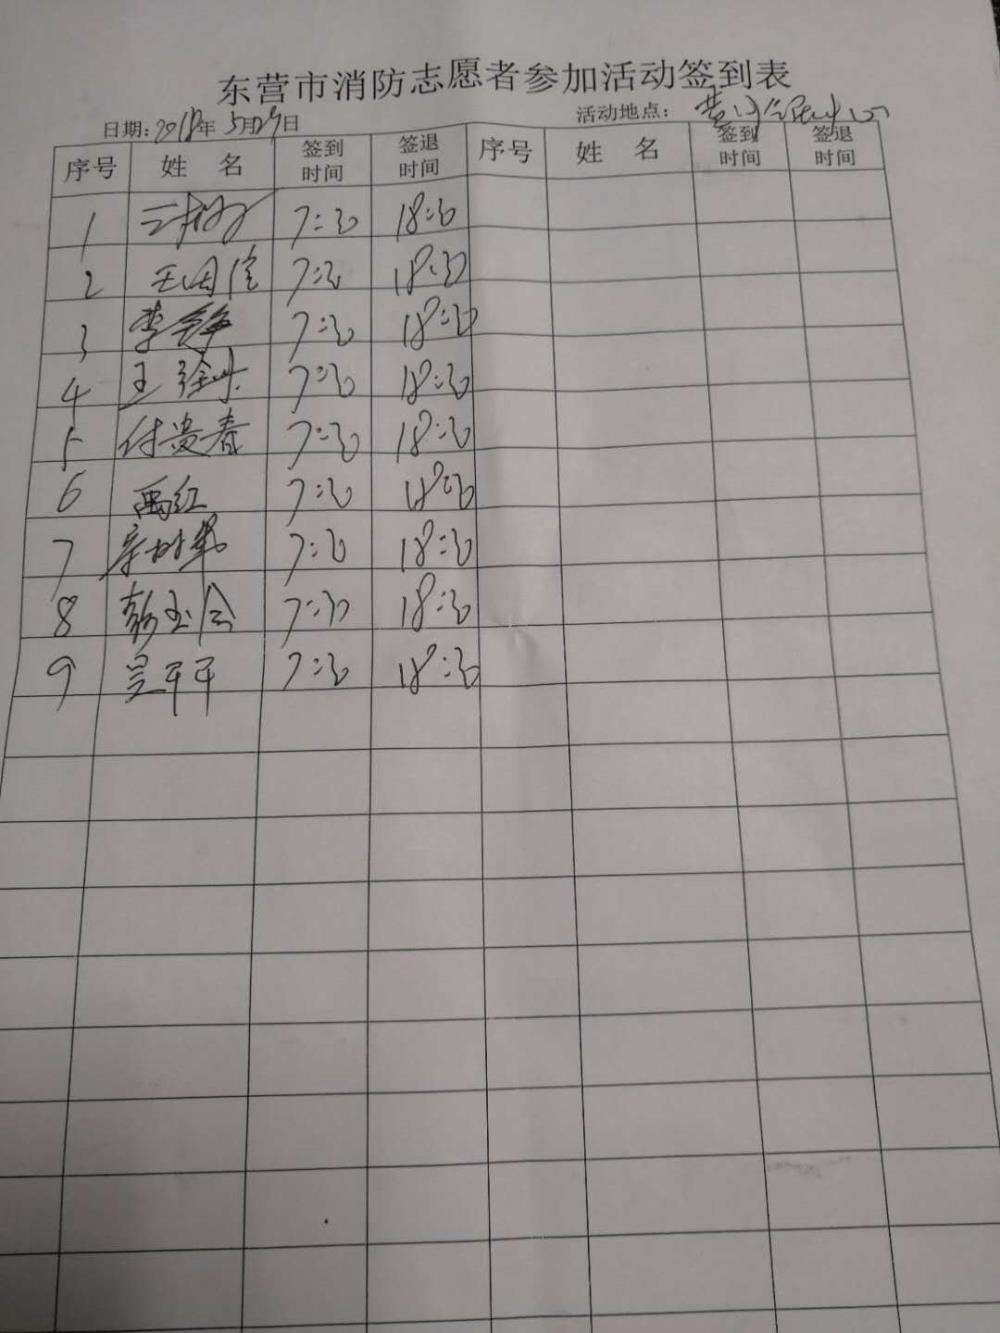 东营市消防志愿者参加活动签到表
日期:2018年5月29日 活动地点:
序号 姓 名 签到时间 签退时间 序号 姓 名 签到时间 签退时间
1 7:30 18:30
2 王国信 7:30 18:30
3 李铮 7:30 18:30
4 王 7:30 18:30
5 付贵春 7:30 18:30
6 禹红 7:30 18:30
7 7:30 18:30
8 彭玉会 7:30 18:30
9 吴平平 7:30 18:30